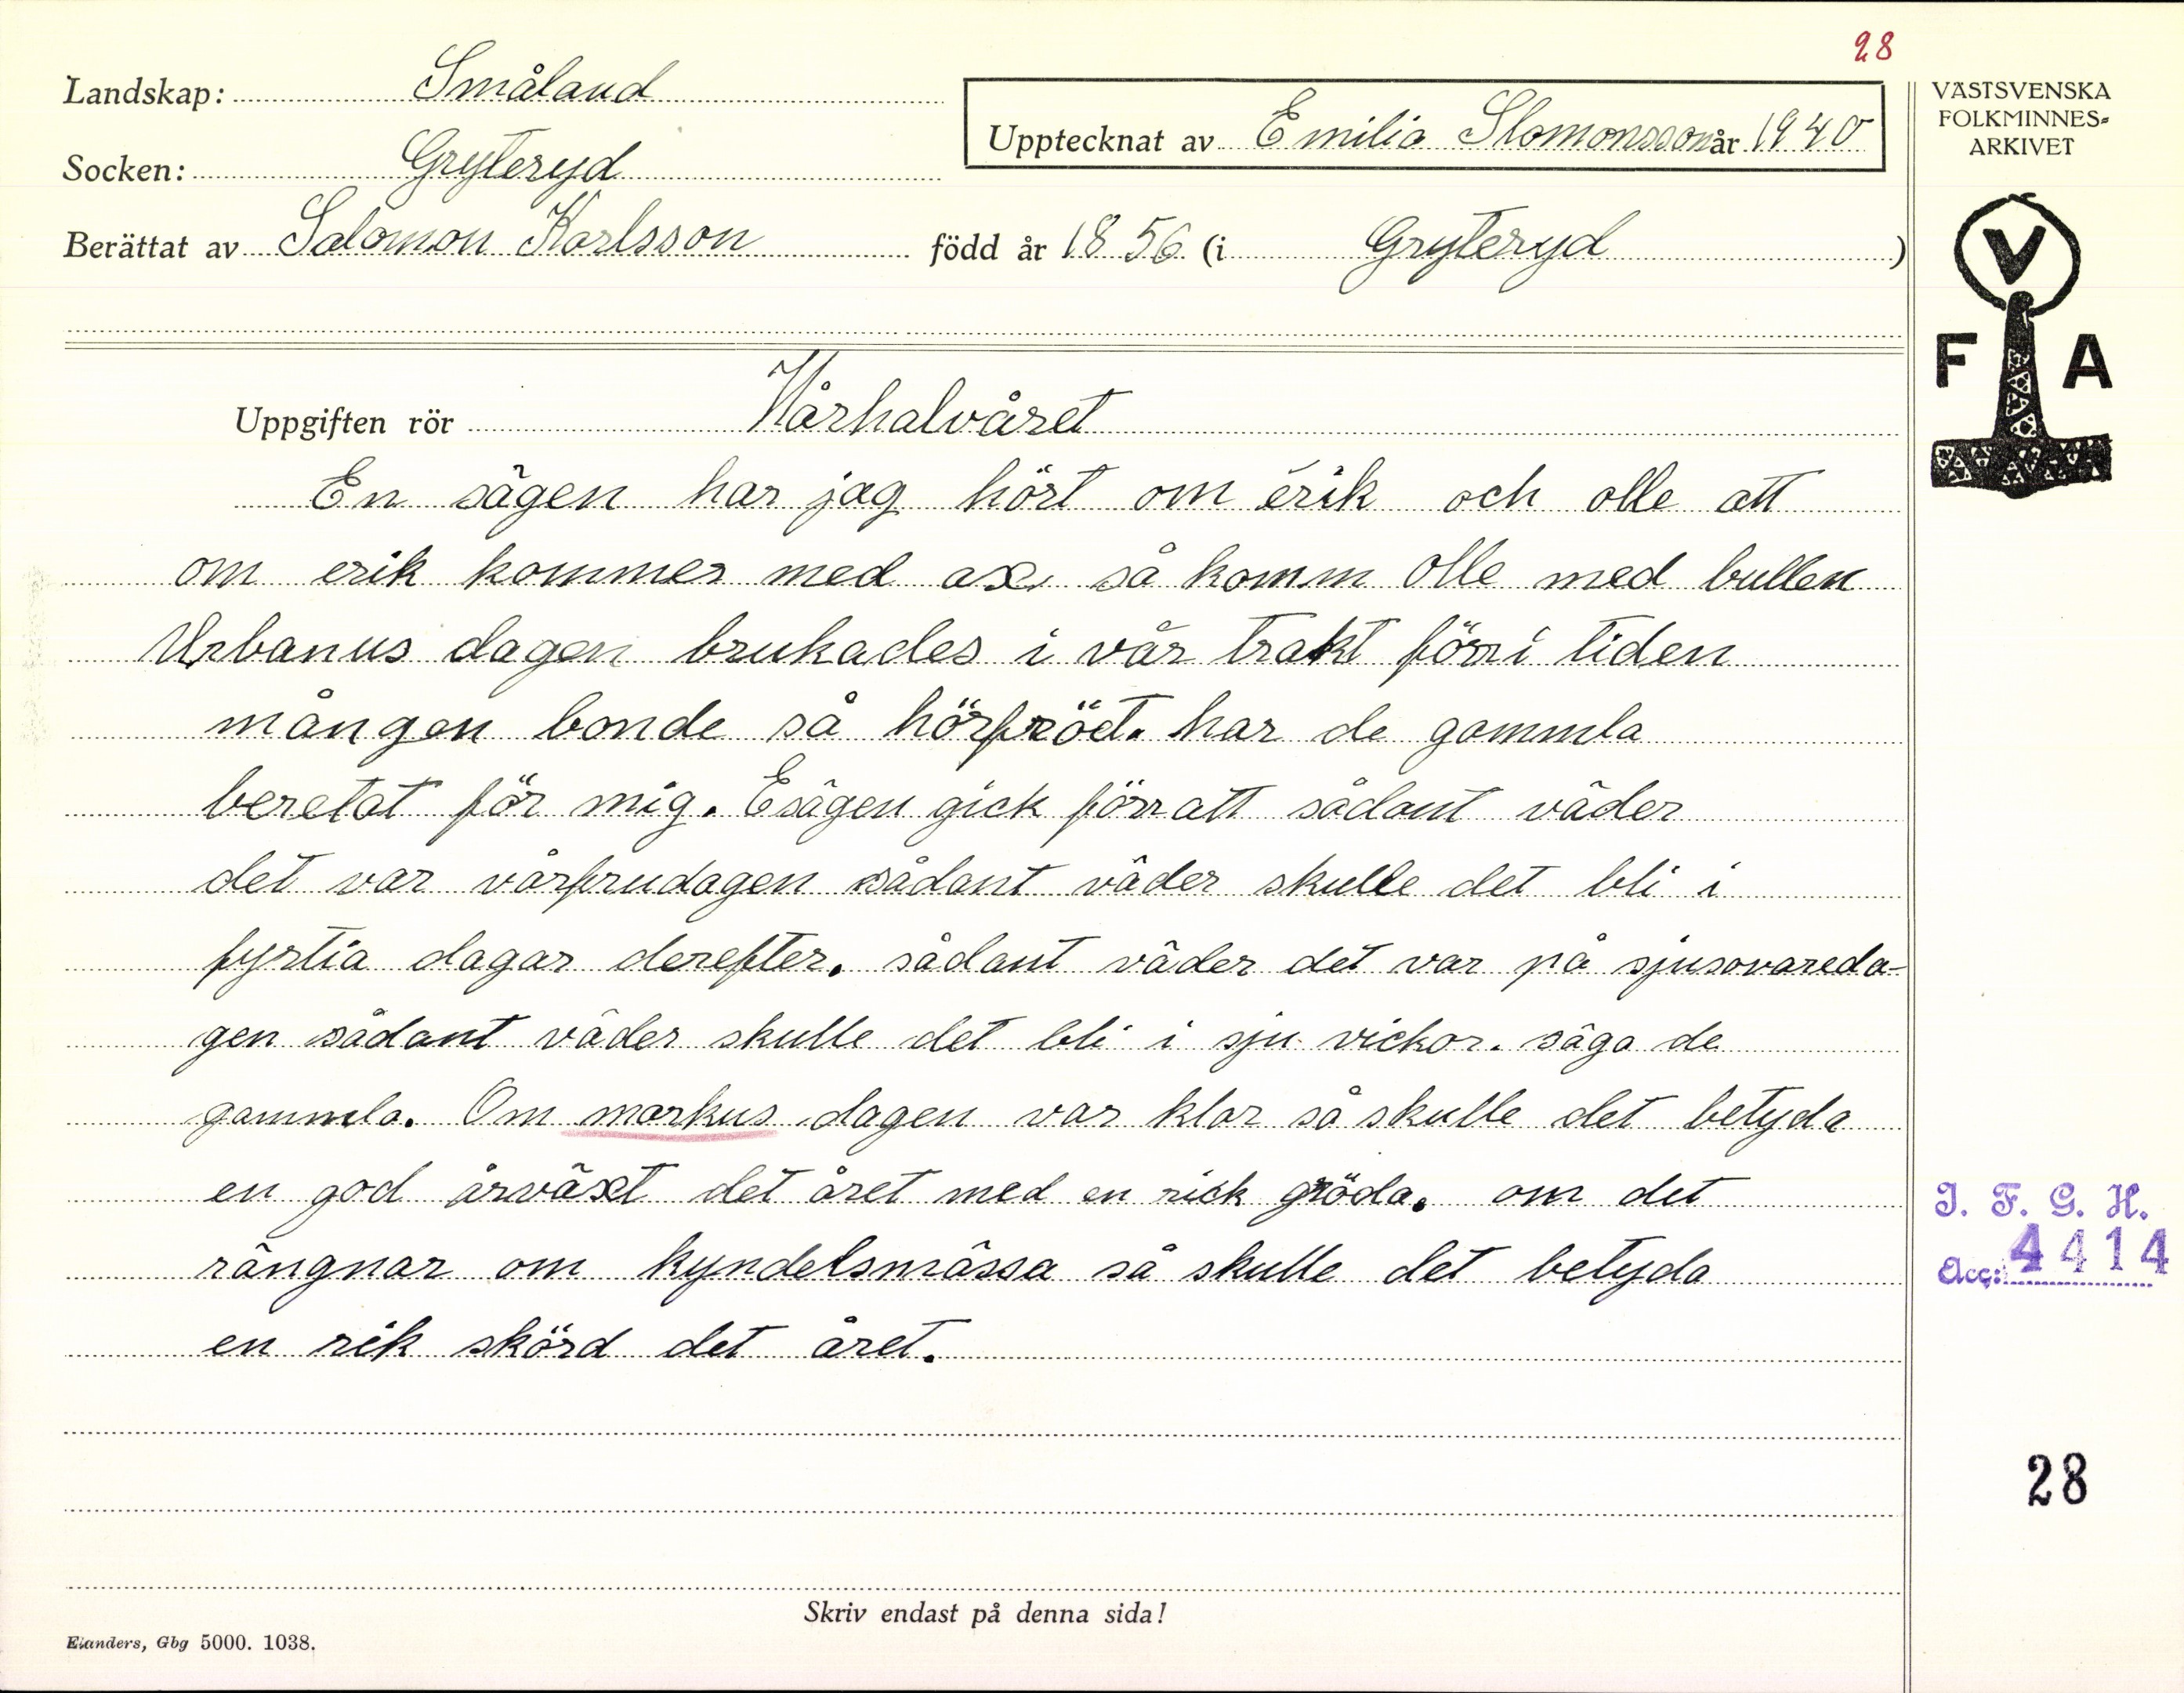 28
Landskap: Småland
Upptecknat av Emilia Slomonsson år 1940
VÄSTSVENSKA
FOLKMINNES-
ARKIVET
Socken: Gryteryd
Berättat av Salomon Karlsson född år 1856 (i Gryteryd)
V
F A
Uppgiften rör Vårhalvåret
En sägen har jag hört om erik och olle att
om erik kommer med ax så komm Olle med bullen
Urbanus dagen brukades i vår trakt förri tiden
mången bonde så hörfröet. har de gammla
beretat för mig. Esägen gick förr att sådant väder
det var vårfrudagen sådant väder skulle det bli i
fyrtia dagar derefter. sådant väder det var på sjusovareda-
gen sådant väder skulle det bli i sju vickor. säga de
gammla. Om markus dagen var klar så skulle det betyda
en god årväxt det året med en rick gröda. om det
rängnar om kyndelsmässa så skulle det betyda
en rik skörd det året.
I. F. G. H.
Acc: 4414
28
Skriv endast på denna sida!
Elanders, Gbg 5000. 1038.